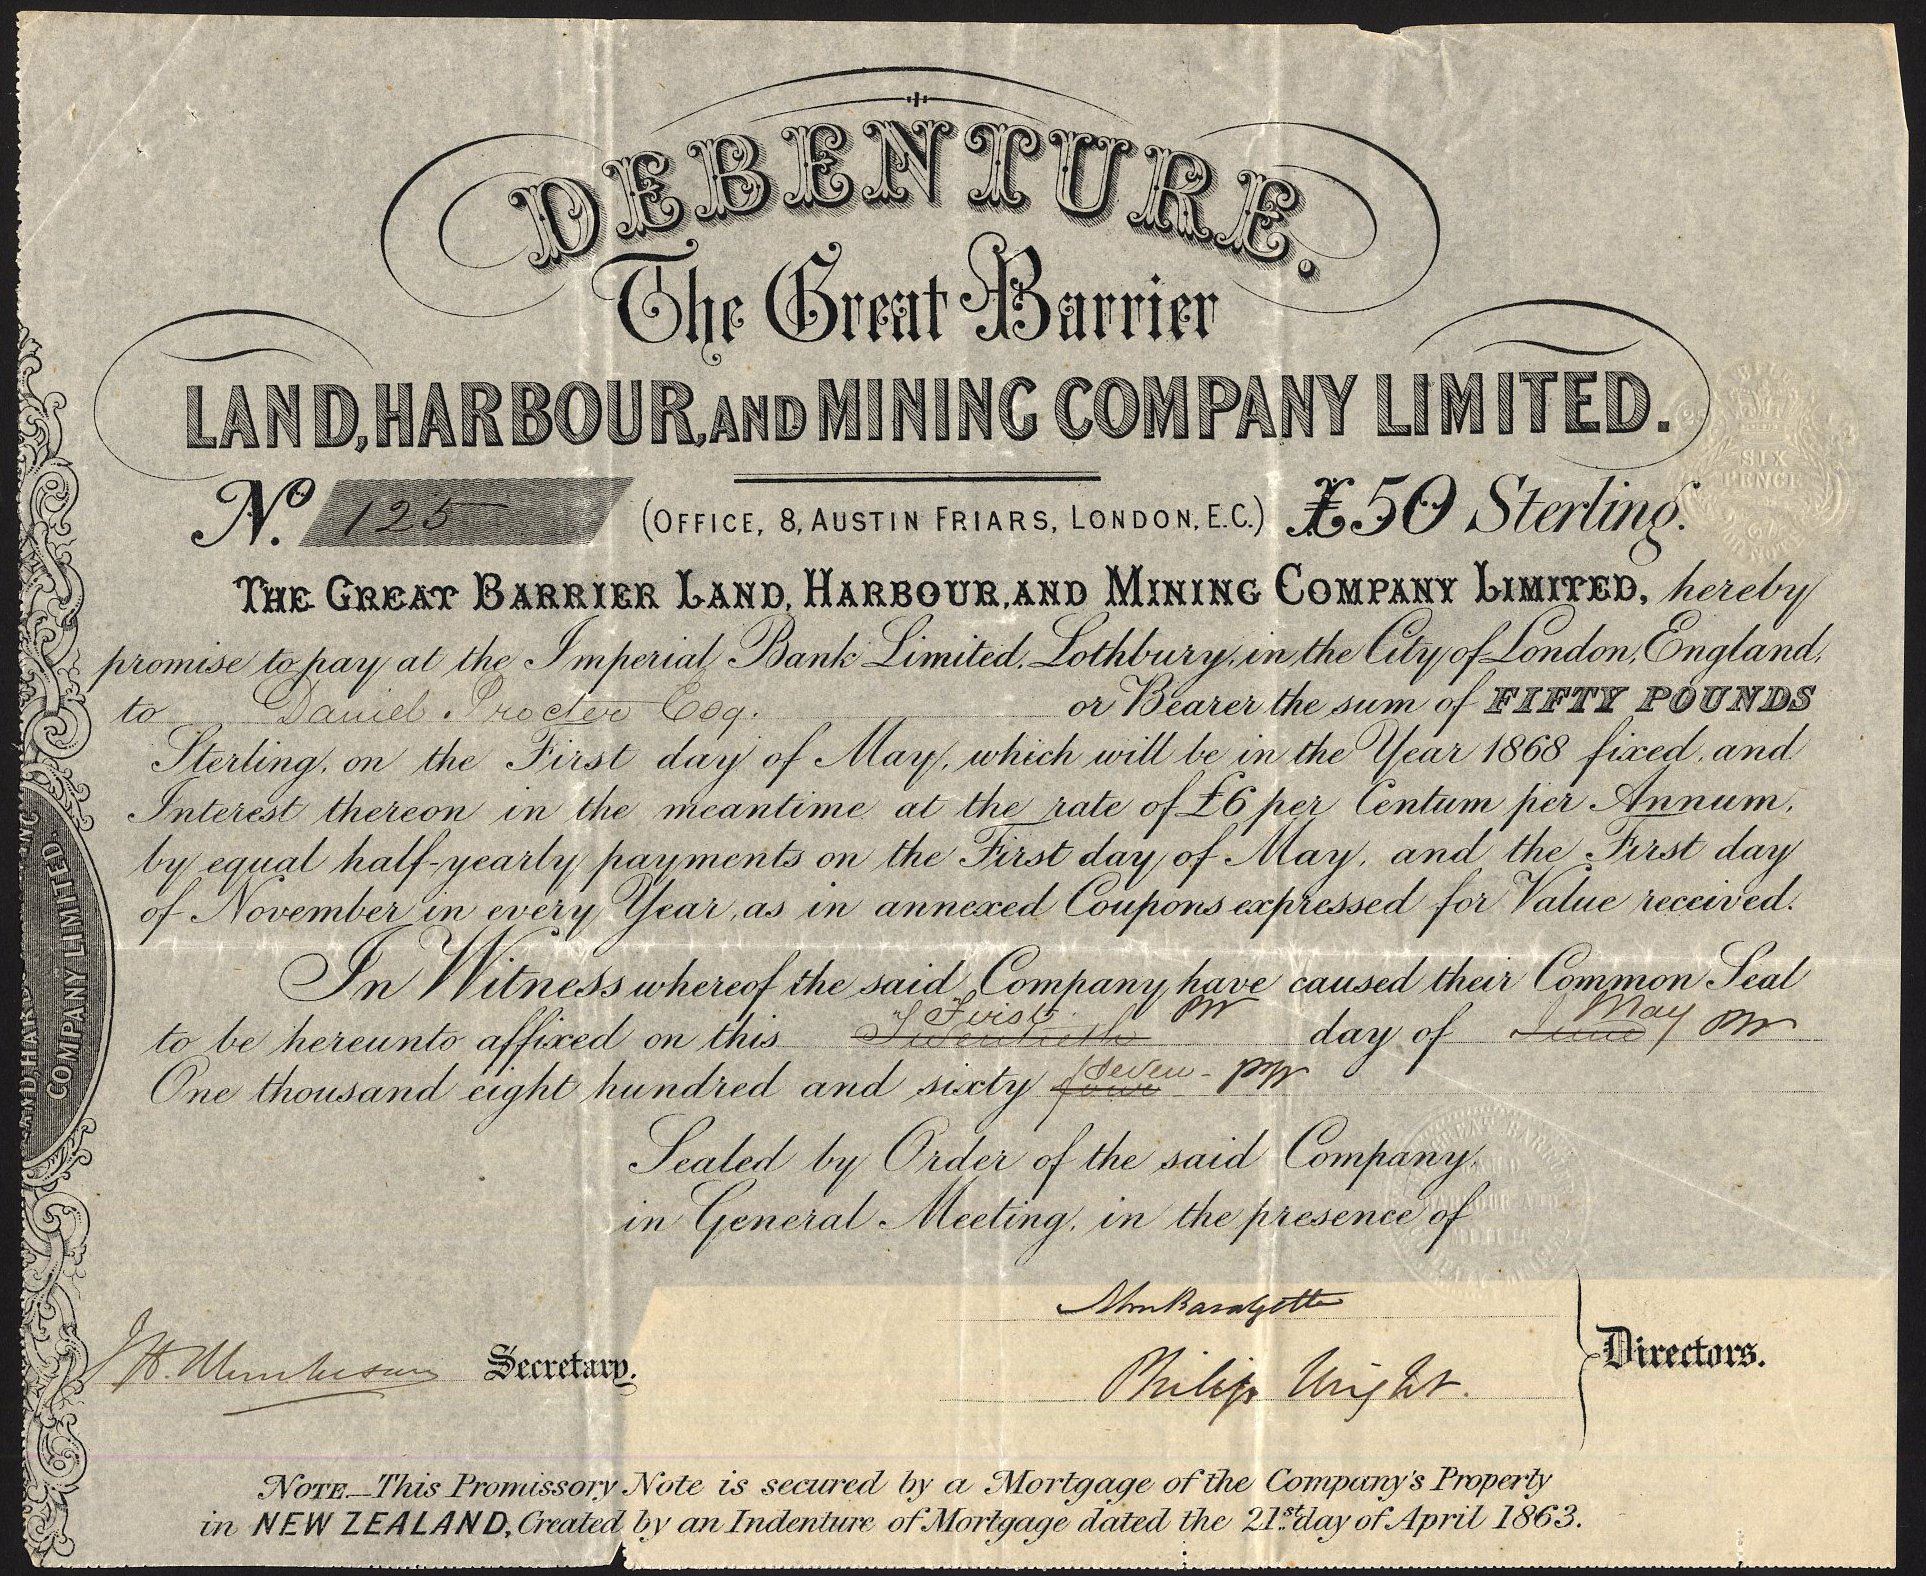 DEBENTURE.
The Great Barrier
LAND, HARBOUR, AND MINING COMPANY LIMITED.
No. 125 (OFFICE, 8, AUSTIN FRIARS, LONDON, E.C.) £50 Sterling.
SIX
PENCE
THE GREAT BARRIER LAND, HARBOUR, AND MINING COMPANY LIMITED, hereby
promise to pay at the Imperial Bank Limited, Lothbury, in the City of London, England,
to Daniel Procter Esq. or Bearer the sum of FIFTY POUNDS
Sterling, on the First day of May, which will be in the Year 1868 fixed, and
Interest thereon in the meantime at the rate of £6 per Centum per Annum,
by equal half-yearly payments on the First day of May, and the First day
of November in every Year, as in annexed Coupons expressed for Value received.
COMPANY LIMITED.
In Witness whereof the said Company have caused their Common Seal
First May
to be hereunto affixed on this Twentieth day of June
Seven
One thousand eight hundred and sixty four
Sealed by Order of the said Company,
in General Meeting, in the presence of
GREAT BARRIER
Secretary.
Philip Wright.
Directors.
NOTE—This Promissory Note is secured by a Mortgage of the Company's Property
in NEW ZEALAND, Created by an Indenture of Mortgage dated the 21st day of April 1863.